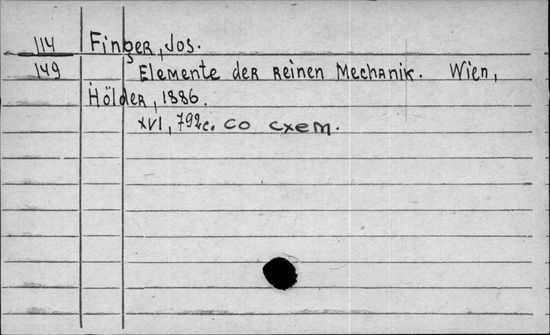 114 Finger, Jos.
149 Elemente der reinen Mechanik. Wien,
Hölder, 1886.
XVI, 792c. со схем.